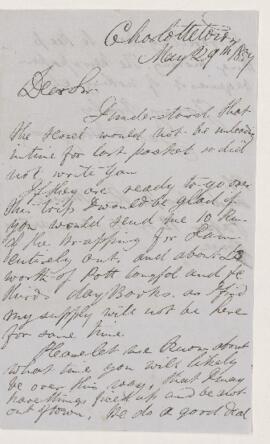 Charlottetown
May 29th 1857
Dear Sir
I understood that
the vessel would not be unloaded
in time for last packet so did
not write you
If they are ready to go over
this trip I would be glad if
you would send me 10
wrapping for I am
entirely out, and about
worth of Pott and fc
day Books. as I find
my supply will not be here
for some time.
Please let me know about
what time you will likely
be over this way, that I may
have things fixed up and be not
out of town. We do a good deal